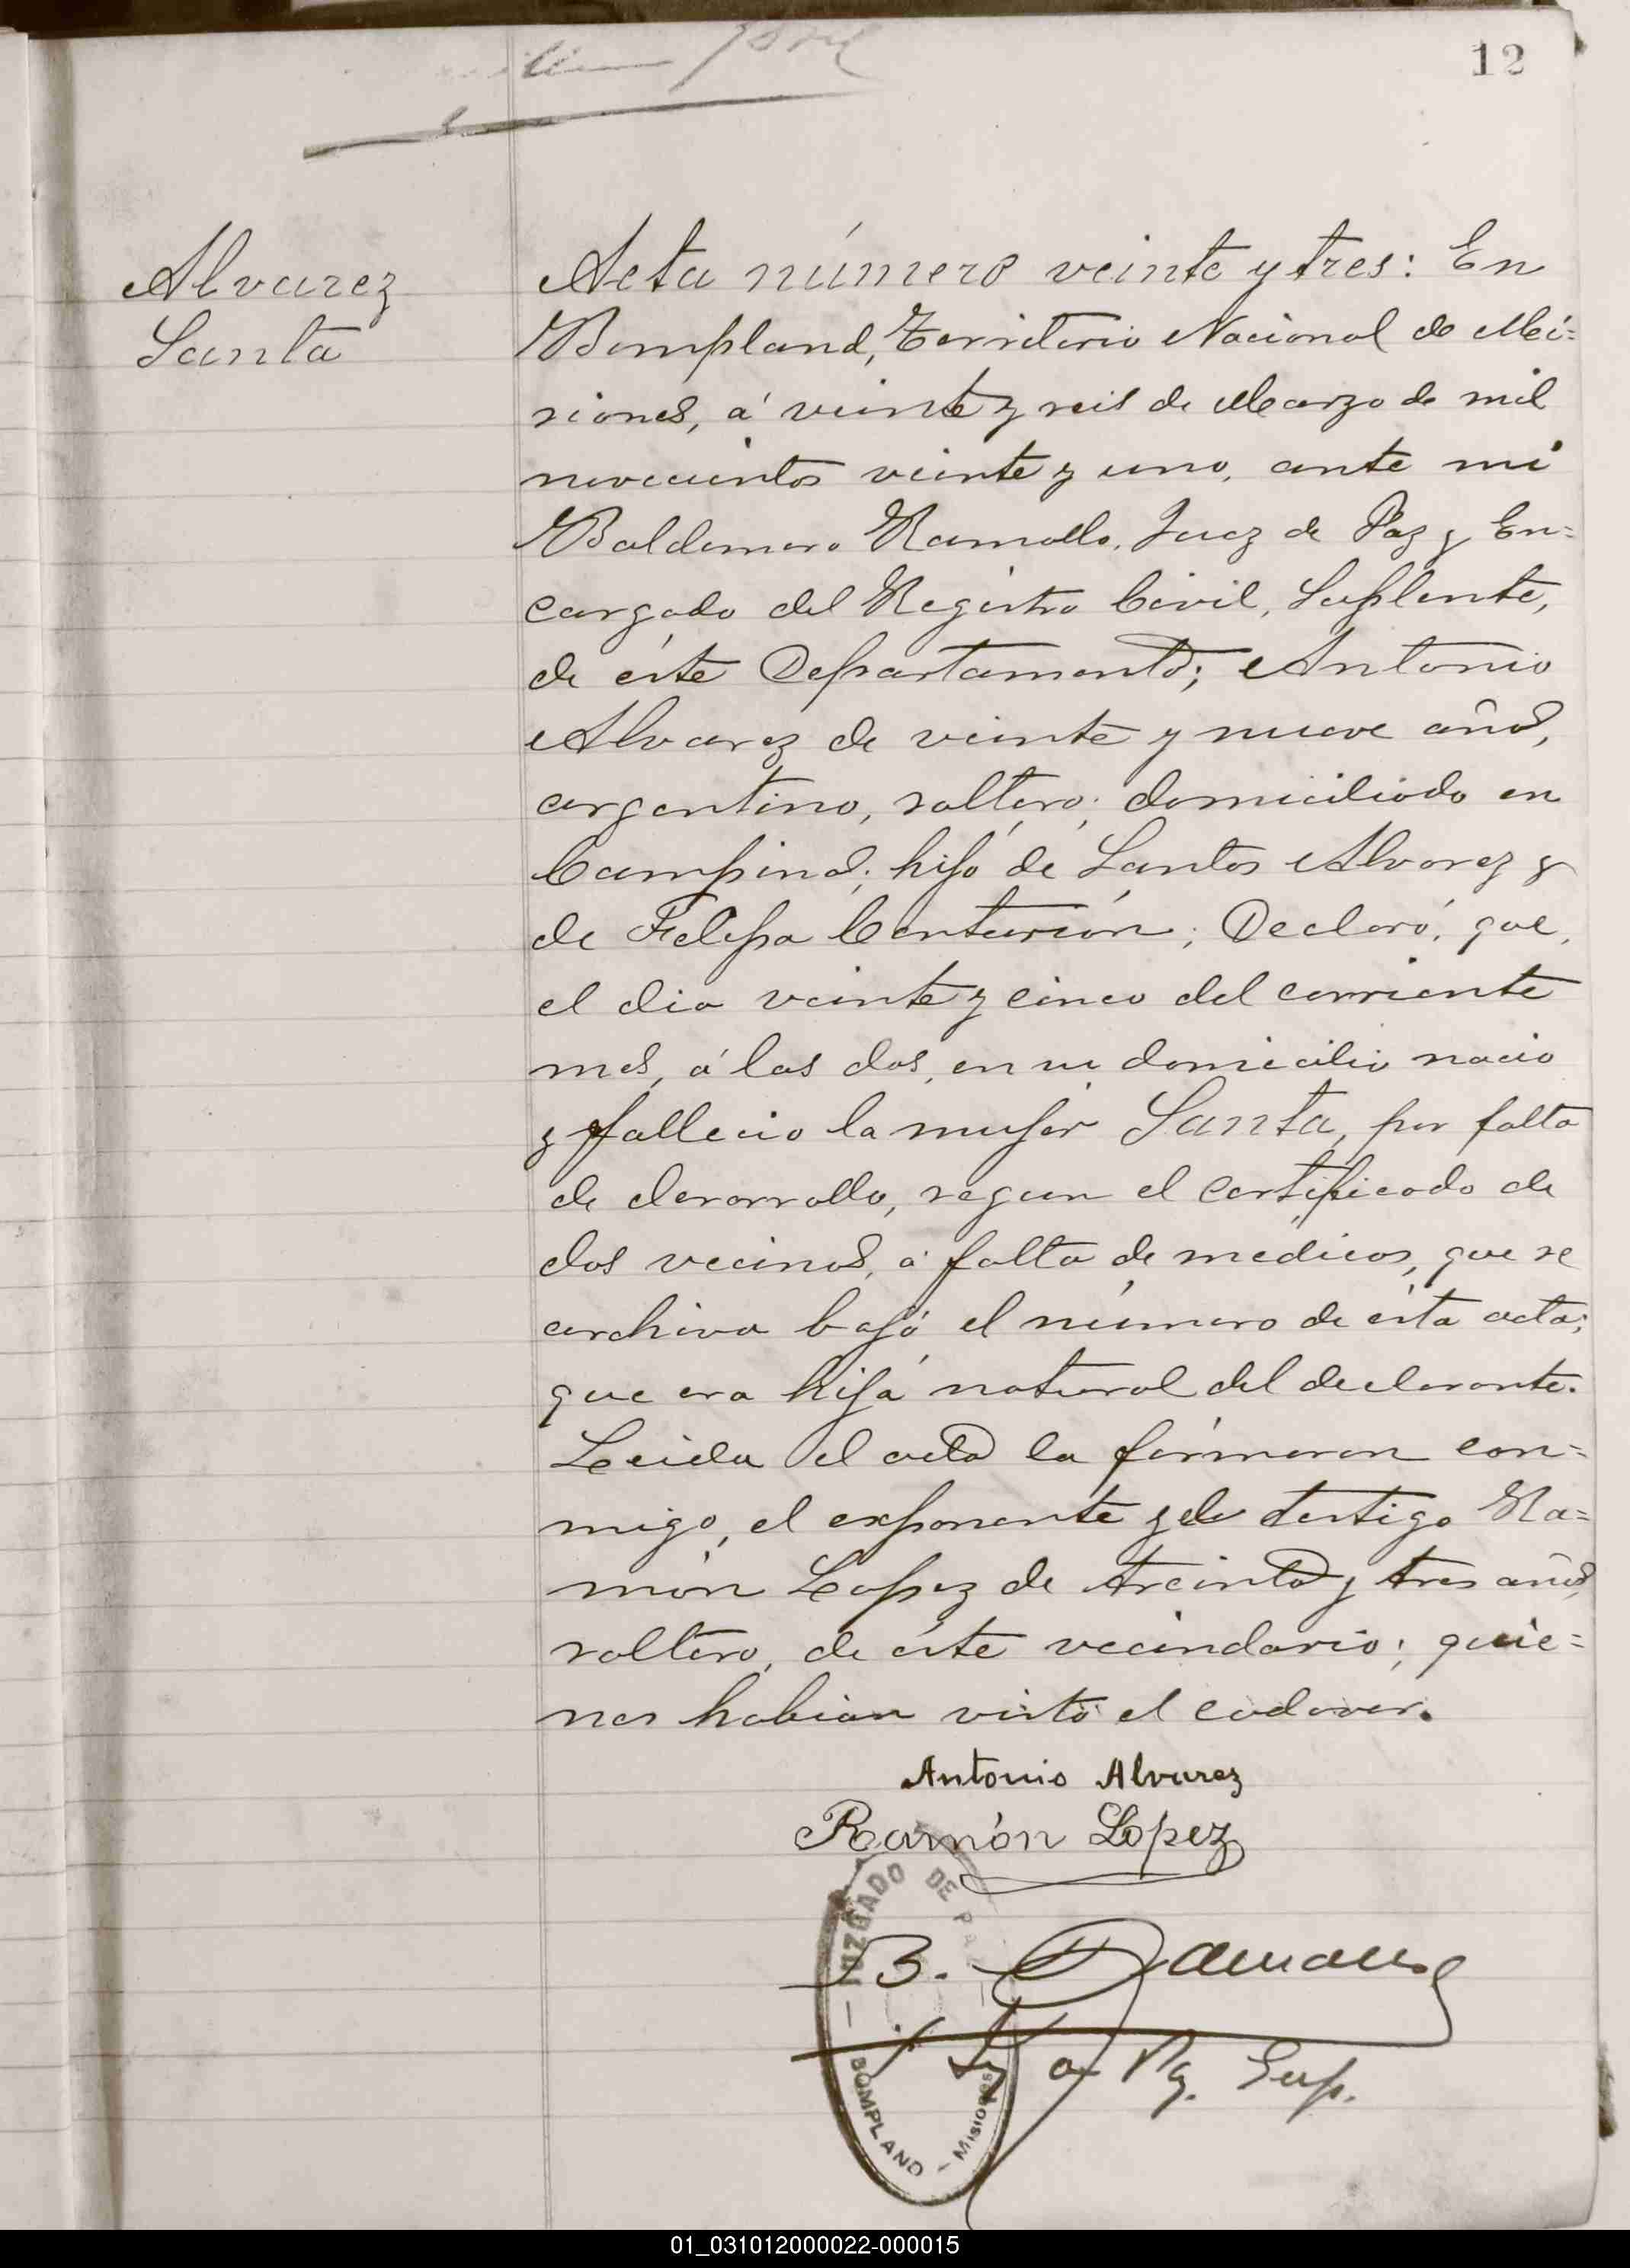 12
Alvarez
Santa
Acta número veinte y tres: En
Bompland, Territorio Nacional de Mi=
siones, á veinte y seis de Marzo de mil
novecientos veinte y uno, ante mi
Baldomero Ramallo, Juez de Paz y En=
cargado del Registro Civil, Suplente,
de éste Departamento; Antonio
Alvarez de veinte y nueve años,
argentino, soltero; domiciliado en
Campinas; hijo de Santos Alvarez y
de Felipa Centurión; Declaró, que,
el dia veinte y cinco del corriente
mes, á las dos, en su domicilio nacio
y fallecio la mujer Santa, por falta
de desarrollo, segun el certificado de
dos vecinos, á falta de medicos, que se
archiva bajo el número de ésta acta;
que era hija natural del declarante.
Leida el acta la firmaron con=
migo, el exponente y el testigo Ra=
món Lopez de treinta y tres años,
soltero, de éste vecindario; quie=
nes habian visto el cadaver.
Antonio Alvarez
Ramón Lopez
JUZGADO DE PAZ
B. Ramallo
J. Pz. Sup.
BOMPLAND - MISIONES
01_031012000022-000015